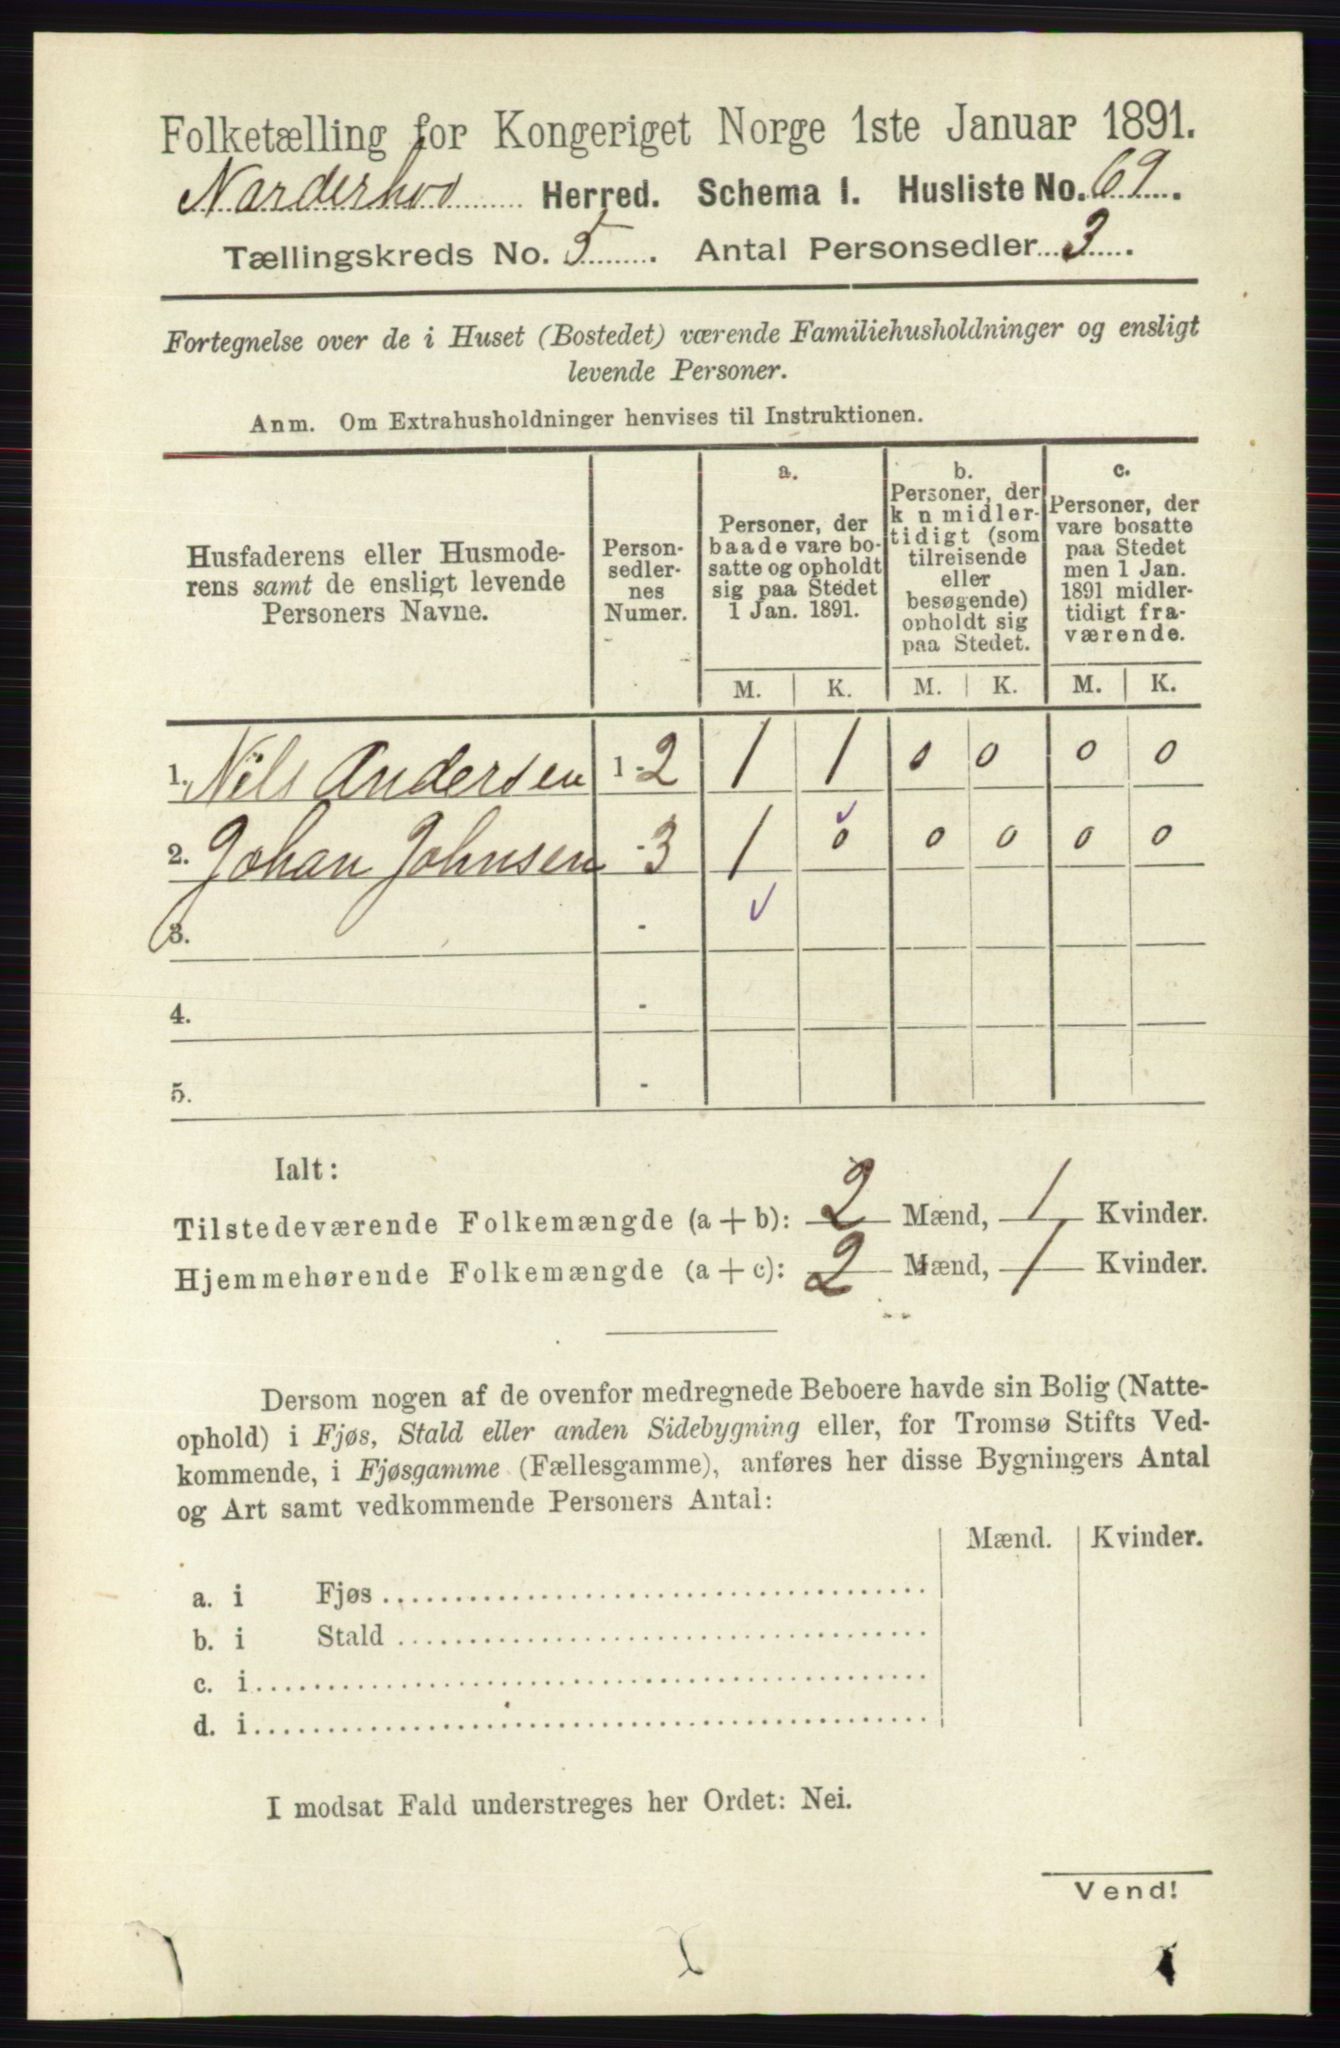 Folketælling for Kongeriget Norge 1ste Januar 1891.
Norderhov Herred. Schema I. Husliste No. 69.
Tællingskreds No. 5. Antal Personsedler 3.
Fortegnelse over de i Huset (Bostedet) værende Familiehusholdninger og ensligt
levende Personer.
Anm. Om Extrahusholdninger henvises til Instruktionen.
Husfaderens eller Husmode-
rens samt de ensligt levende
Personers Navne.
Person-
sedler-
nes
Numer.
a.
Personer, der
baade vare bo-
satte og opholdt
sig paa Stedet
1 Jan. 1891.
b.
Personer, der
k n midler-
tidigt (som
tilreisende
eller
besøgende)
opholdt sig
paa Stedet.
c.
Personer, der
vare bosatte
paa Stedet
men 1 Jan.
1891 midler-
tidigt fra-
værende.
M. K. M. K. M. K.
1. Nils Andersen 1-2 1 1 0 0 0 0
2. Johan Johnsen -3 1 0 0 0 0 0
3. -
4. -
5. -
Ialt:
Tilstedeværende Folkemængde (a + b): 2 Mænd, 1 Kvinder.
Hjemmehørende Folkemængde (a + c): 2 Mænd, 1 Kvinder.
Dersom nogen af de ovenfor medregnede Beboere havde sin Bolig (Natte-
ophold) i Fjøs, Stald eller anden Sidebygning eller, for Tromsø Stifts Ved-
kommende, i Fjøsgamme (Fællesgamme), anføres her disse Bygningers Antal
og Art samt vedkommende Personers Antal:
Mænd. Kvinder.
a. i Fjøs
b. i Stald
c. i
d. i
I modsat Fald understreges her Ordet: Nei.
Vend!